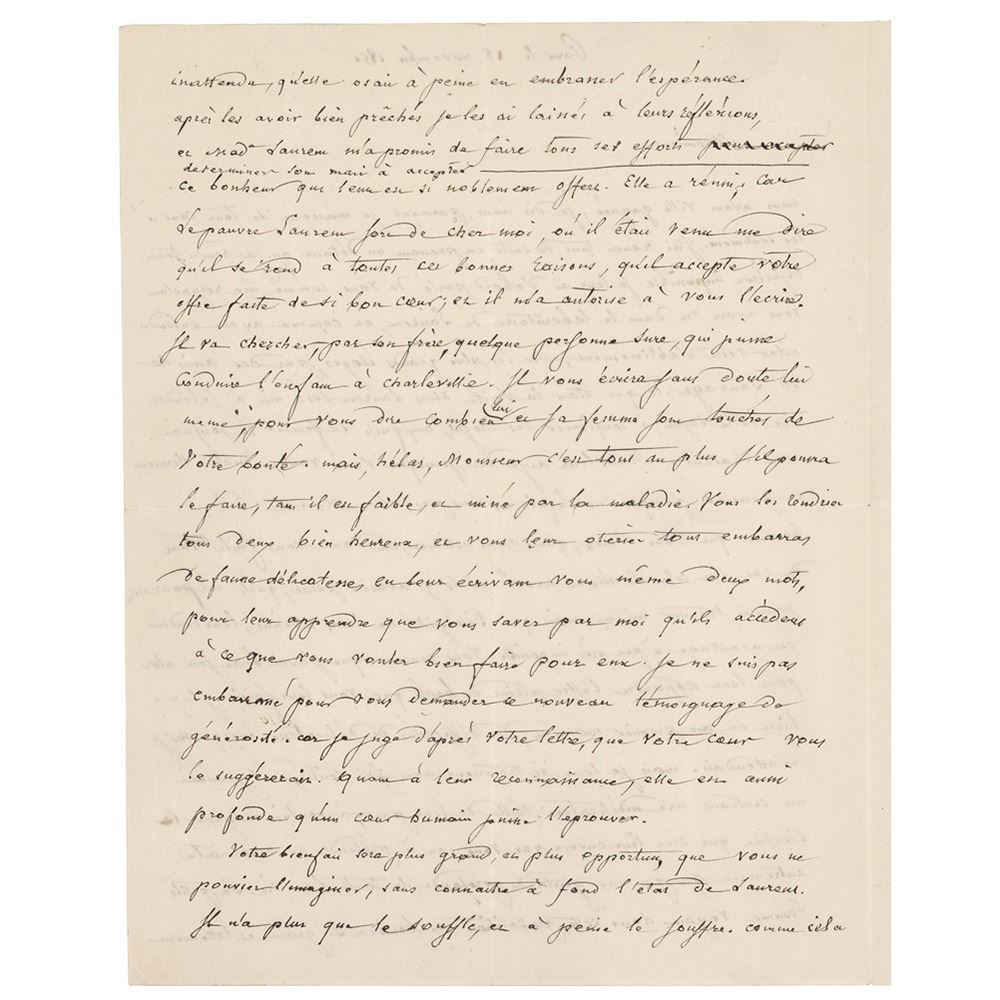 inattendu, qu'elle osait à peine en embrasser l'espérance.
après les avoir bien prêchés je les ai laissés à leurs réfléxions,
et Mad.e Laurent m'a promis de faire tous ses efforts pour accepter
determiner son mari à accepter
ce bonheur qui leur est si noblement offert. Elle a réussi, car
Le pauvre Laurent sort de chez moi, où il était venu me dire
qu'il se rend à toutes ces bonnes raisons, qu'il accepte votre
offre faite de si bon cœur; et il m'a autorisé à vous l'écrire.
Il va chercher, par son frère, quelque personne sure, qui puisse
conduire l'enfant à charleville. Il vous écrira sans doute lui
meme, pour vous dire combien lui et sa femme sont touchés de
votre bonté. mais, hélas, Monsieur c'est tout au plus s'il pourra
le faire, tant il est faible, et miné par la maladie. Vous les rendriez
tous deux bien heureux, et vous leur oteriez tout embarras
de fausse délicatesse, en leur écrivant vous même deux mots,
pour leur apprendre que vous savez par moi qu'ils accèdent
à ce que vous voulez bien faire pour eux. Je ne suis pas
embarrassé pour vous demander ce nouveau témoignage de
générosité. car je juge d'après votre lettre, que votre cœur vous
le suggérerait. Quant à leur reconnaissance, elle est aussi
profonde qu'un cœur humain puisse l'éprouver.
Votre bienfait sera plus grand, et plus opportun, que vous ne
pouviez l'imaginer, sans connaitre à fond l'état de Laurent.
Il n'a plus que le souffle, et à peine le souffle. comme cela